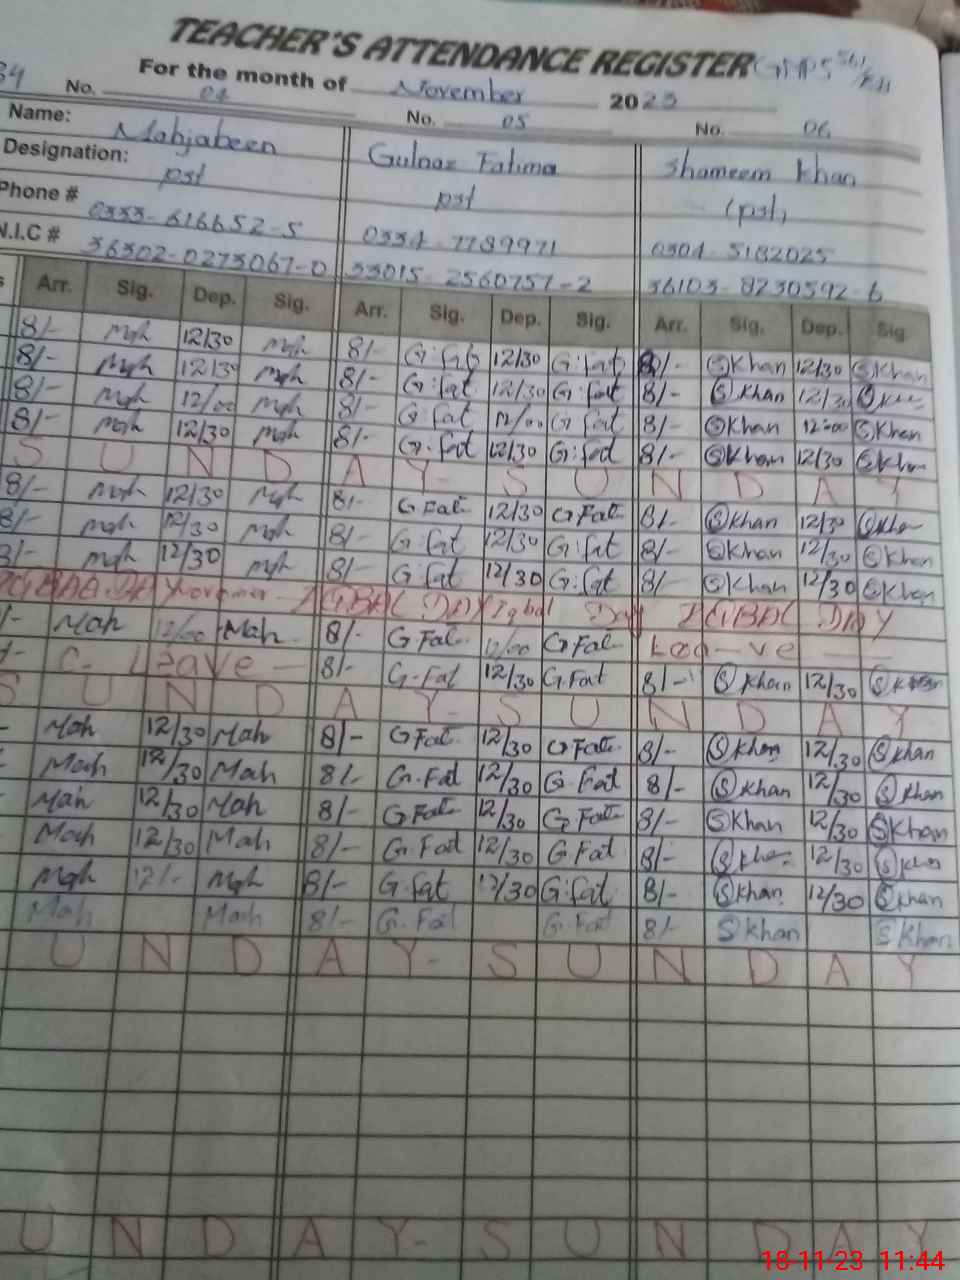 TEACHER'S ATTENDANCE REGISTER GMPS 561/EB
34 For the month of November 2023
No. 04 No. 05 No. 06
Name: Mahjabeen Gulnaz Fatima Shameem Khan
Designation: pst pst (pst)
Phone # 0333-616652-5 0334-7789971 0304-5182025
N.I.C # 36302-0273067-0 33015-2560757-2 36103-8230592-6
Arr. Sig. Dep. Sig. Arr. Sig. Dep. Sig. Arr. Sig. Dep. Sig
8/- Mah 12/30 Mah 8/- G.fat 12/30 G.fat 8/- S Khan 12/30 S Khan
8/- Mah 12/30 Mah 8/- G.fat 12/30 G.fat 8/- S Khan 12/30 S Khan
8/- Mah 12/00 Mah 8/- G.fat 12/00 G.fat 8/- S Khan 12:00 S Khan
8/- Mah 12/30 Mah 8/- G.fat 12/30 G.fat 8/- S Khan 12/30 S Khan
S U N D A Y - S U N D A Y
8/- Mah 12/30 Mah 8/- G Fat 12/30 G Fat 8/- S Khan 12/30 S Khan
8/- Mah 12/30 Mah 8/- G.fat 12/30 G.fat 8/- S Khan 12/30 S Khan
8/- Mah 12/30 Mah 8/- G.fat 12/30 G.fat 8/- S Khan 12/30 S Khan
DAY November IQBAL DAY Iqbal Day IQBAL DAY
/- Mah 12/00 Mah 8/- G Fat 12/00 G Fat Lea-ve
/- C. Leave - 8/- G.Fat 12/30 G.Fat 8/- S Khan 12/30 S Khan
S U N D A Y - S U N D A Y
- Mah 12/30 Mah 8/- G Fat 12/30 G Fat 8/- S Khan 12/30 S Khan
- Mah 12/30 Mah 8/- G.Fat 12/30 G.Fat 8/- S Khan 12/30 S Khan
- Mah 12/30 Mah 8/- G Fat 12/30 G Fat 8/- S Khan 12/30 S Khan
Mah 12/30 Mah 8/- G.Fat 12/30 G.Fat 8/- S Khan 12/30 S Khan
Mah 12/- Mah 8/- G.fat 12/30 G.fat 8/- S Khan 12/30 S Khan
Mah Mah 8/- G.Fat G.Fat 8/- S Khan S Khan
U N D A Y - S U N D A Y
U N D A Y - S U N D A Y
18-11-23 11:44